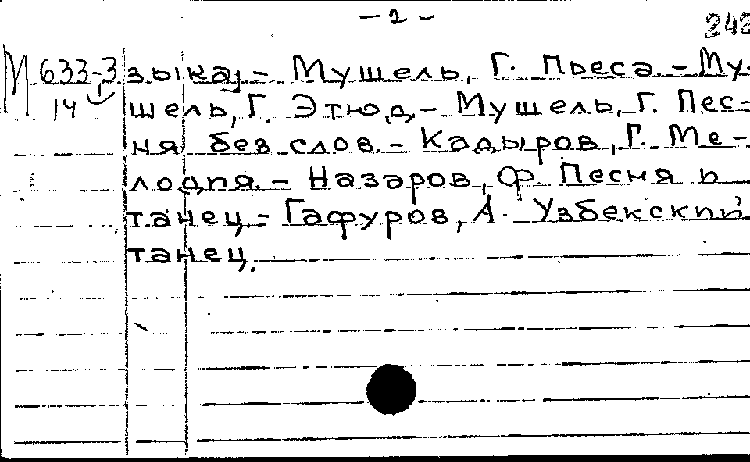 - 2 -
242
М 633-3
14
зыка, - Мушель, Г. Пьеса. - Му-
шель, Г. Этюд. - Мушель, Г. Пес-
ня без слов. - Кадыров, Г. Ме-
лодия. - Назаров, Ф. Песня и
танец. - Гафуров, А. Узбекский
танец.